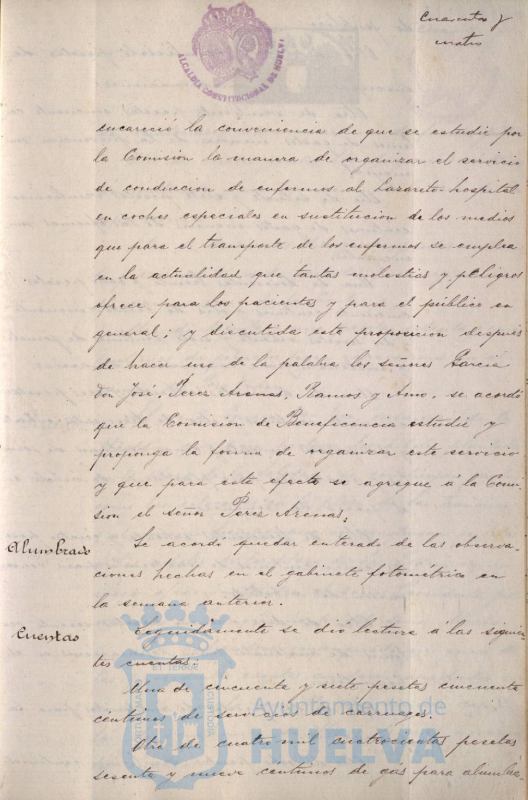 Cuarenta y
cuatro
ALCALDIA CONSTITUCIONAL DE HUELVA
encareció la conveniencia de que se estudie por
la Comisión la manera de organizar el servicio
de conduccion de enfermos al Lazareto-hospital
en coches especiales en sustitucion de los medios
que para el transporte de los enfermos se emplea
en la actualidad que tantas molestias y peligros
ofrece para los pacientes y para el público en
general; y discutida esta proposicion despues
de hacer uso de la palabra los señores García
Don José, Perez Arenas, Ramos y Amo, se acordó
que la Comision de Beneficencia estudie y
proponga la forma de organizar este servicio
y que para este efecto se agregue á la Comi-
sion el señor Perez Arenas.
Alumbrado
Se acordó quedar enterado de las observa-
ciones hechas en el gabinete fotométrico en
la semana anterior.
Cuentas
Seguidamente se dió lectura á las siguien-
tes cuentas:
Una de cincuenta y siete pesetas cincuenta
centimos de servicio de carruages.
Otra de cuatro mil cuatrocientas pesetas
sesenta y nueve céntimos de gás para alumbra-
Ayuntamiento de
HUELVA